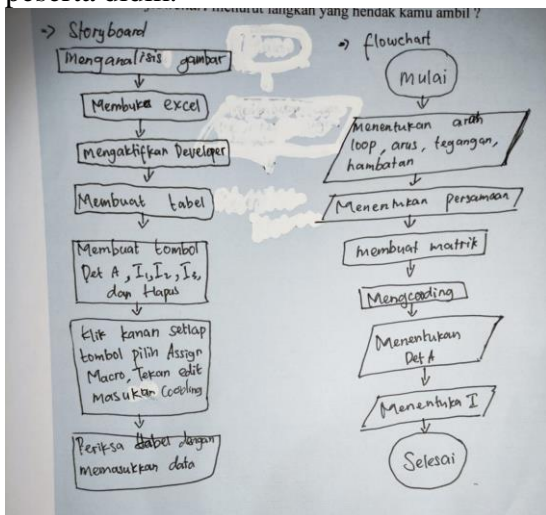 peserta didik.
menurut langkah yang hendak kamu ambil ?
-> Storyboard
Menganalisis gambar
Membuka excel
Mengaktifkan Developer
Membuat tabel
Membuat tombol
Det A, I1, I2, I3,
dan Hapus
Klik kanan setiap
tombol pilih Assign
Macro, Tekan edit
Masukan Coding
Periksa tabel dengan
memasukkan data
-> flowchart
Mulai
Menentukan arah
loop, arus, tegangan,
hambatan
Menentukan persamaan
membuat matrik
Mengcoding
Menentukan
Det A
Menentukan I
Selesai